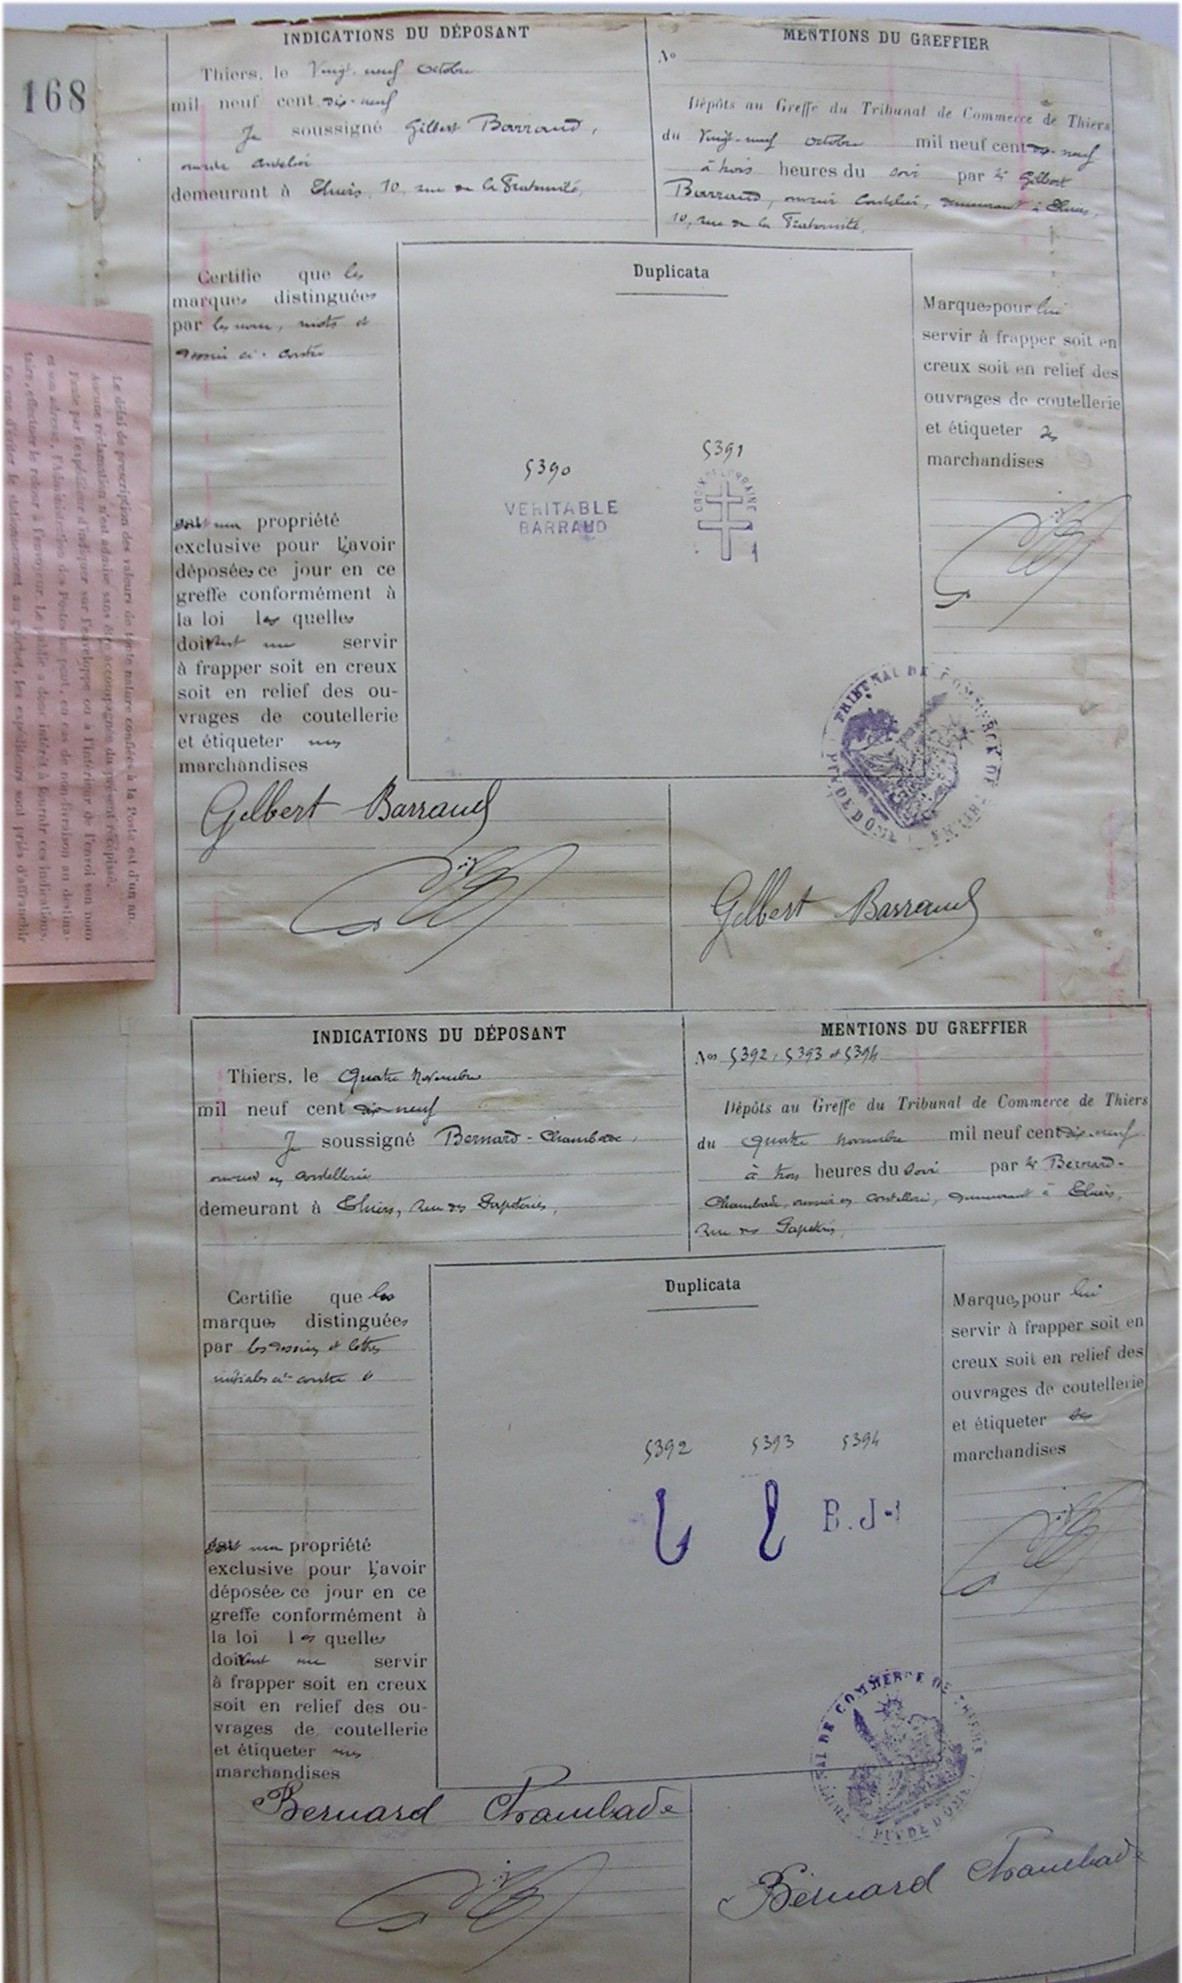 168
INDICATIONS DU DÉPOSANT
Thiers, le Vingt-neuf octobre
mil neuf cent dix-neuf
Je soussigné Gilbert Barraud,
demeurant à Thiers, 10, rue de la Fraternité,
MENTIONS DU GREFFIER
No
Dépôts au Greffe du Tribunal de Commerce de Thiers
du Vingt-neuf octobre mil neuf cent dix-neuf
à trois heures du soir par Mr Gilbert
Barraud, ouvrier coutelier, demeurant à Thiers,
10, rue de la Fraternité.
Certifie que les
marques distinguées
par les nom, mots et
dessin ci-contre
sont ma propriété
exclusive pour l'avoir
déposées ce jour en ce
greffe conformément à
la loi les quelles
doivent me servir
à frapper soit en creux
soit en relief des ou-
vrages de coutellerie
et étiqueter mes
marchandises
Duplicata
5390
VERITABLE
BARRAUD
5391
CROIX DE LORRAINE
Marques pour lui
servir à frapper soit en
creux soit en relief des
ouvrages de coutellerie
et étiqueter ses
marchandises
TRIBUNAL DE COMMERCE DE THIERS
PUY DE DOME
Gilbert Barraud
Gilbert Barraud
Le délai de prescription des valeurs de toute nature confiées à la Poste est d'un an.
Aucune réclamation n'est admise sans être accompagnée du présent récépissé.
Faute par l'expéditeur d'indiquer sur l'enveloppe ou à l'intérieur de l'envoi son nom
et son adresse, l'Administration des Postes ne peut, en cas de non-livraison au destina-
taire, effectuer le retour à l'envoyeur. Le public a donc intérêt à fournir ces indications.
En vue d'éviter le stationnement au guichet, les expéditeurs sont priés d'affranchir
INDICATIONS DU DÉPOSANT
Thiers, le quatre novembre
mil neuf cent dix-neuf
Je soussigné Bernard-Chambade,
ouvrier en coutellerie
demeurant à Thiers, rue des Papeteries,
MENTIONS DU GREFFIER
Nos 5392, 5393 et 5394
Dépôts au Greffe du Tribunal de Commerce de Thiers
du quatre novembre mil neuf cent dix-neuf
à trois heures du soir par Mr Bernard-
Chambade, ouvrier en coutellerie, demeurant à Thiers,
rue des Papeteries,
Certifie que les
marques distinguées
par les dessins et lettres
initiales ci-contre
sont ma propriété
exclusive pour l'avoir
déposées ce jour en ce
greffe conformément à
la loi les quelles
doivent me servir
à frapper soit en creux
soit en relief des ou-
vrages de coutellerie
et étiqueter mes
marchandises
Duplicata
5392 5393 5394
B.J
Marques pour lui
servir à frapper soit en
creux soit en relief des
ouvrages de coutellerie
et étiqueter ses
marchandises
TRIBUNAL DE COMMERCE DE THIERS
PUY DE DOME
Bernard Chambade
Bernard Chambade